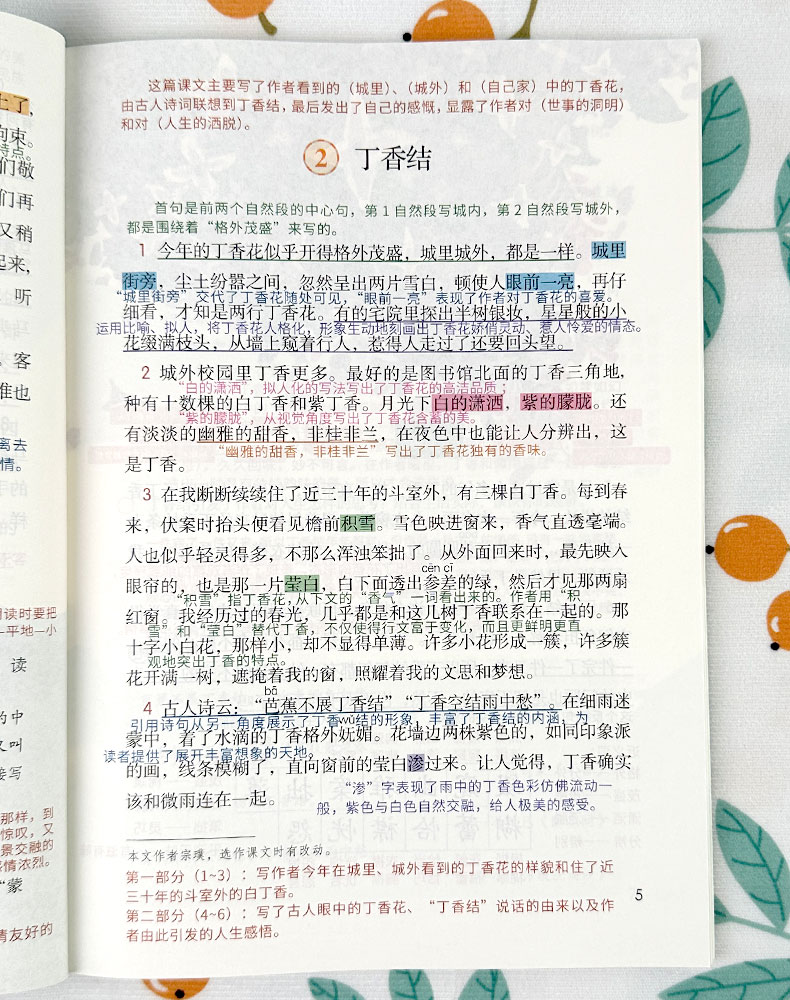 土了，
拘束。
特点。
们敬
们再
又稍
起来，
听
客
谁也
离去
情。
读时要把
—平地—小
读
的中
又叫
接写
那样，到
惊叹，又
景交融的
感情浓烈。
“蒙
情友好的
这篇课文主要写了作者看到的（城里）、（城外）和（自己家）中的丁香花，
由古人诗词联想到丁香结，最后发出了自己的感慨，显露了作者对（世事的洞明）
和对（人生的洒脱）。
2 丁香结
首句是前两个自然段的中心句，第1自然段写城内，第2自然段写城外，
都是围绕着“格外茂盛”来写的。
1 今年的丁香花似乎开得格外茂盛，城里城外，都是一样。城里
街旁，尘土纷嚣之间，忽然呈出两片雪白，顿使人眼前一亮，再仔
“城里街旁”交代了丁香花随处可见，“眼前一亮”表现了作者对丁香花的喜爱。
细看，才知是两行丁香花。有的宅院里探出半树银妆，星星般的小
运用比喻、拟人，将丁香花人格化，形象生动地刻画出丁香花娇俏灵动、惹人怜爱的情态。
花缀满枝头，从墙上窥着行人，惹得人走过了还要回头望。
2 城外校园里丁香更多。最好的是图书馆北面的丁香三角地，
“白的潇洒”，拟人化的写法写出了丁香花的高洁品质；
种有十数棵的白丁香和紫丁香。月光下白的潇洒，紫的朦胧。还
“紫的朦胧”，从视觉角度写出了丁香花含蓄的美。
有淡淡的幽雅的甜香，非桂非兰，在夜色中也能让人分辨出，这
“幽雅的甜香，非桂非兰”写出了丁香花独有的香味。
是丁香。
3 在我断断续续住了近三十年的斗室外，有三棵白丁香。每到春
来，伏案时抬头便看见檐前积雪。雪色映进窗来，香气直透毫端。
人也似乎轻灵得多，不那么浑浊笨拙了。从外面回来时，最先映入
cēn cī
眼帘的，也是那一片莹白，白下面透出参差的绿，然后才见那两扇
“积雪”指丁香花，从下文的“香气”一词看出来的。作者用“积
红窗。我经历过的春光，几乎都是和这几树丁香联系在一起的。那
雪”和“莹白”替代丁香，不仅使得行文富于变化，而且更鲜明更直
十字小白花，那样小，却不显得单薄。许多小花形成一簇，许多簇
观地突出了丁香的特点。
花开满一树，遮掩着我的窗，照耀着我的文思和梦想。
bā
4 古人诗云：“芭蕉不展丁香结”“丁香空结雨中愁”。在细雨迷
引用诗句从另一角度展示了丁香结的形象，丰富了丁香结的内涵，为
wǔ
蒙中，着了水滴的丁香格外妩媚。花墙边两株紫色的，如同印象派
读者提供了展开丰富想象的天地。
的画，线条模糊了，直向窗前的莹白渗过来。让人觉得，丁香确实
“渗”字表现了雨中的丁香色彩仿佛流动一
该和微雨连在一起。
般，紫色与白色自然交融，给人极美的感受。
本文作者宗璞，选作课文时有改动。
第一部分（1~3）：写作者今年在城里、城外看到的丁香花的样貌和住了近
三十年的斗室外的白丁香。
第二部分（4~6）：写了古人眼中的丁香花、“丁香结”说话的由来以及作
者由此引发的人生感悟。
5